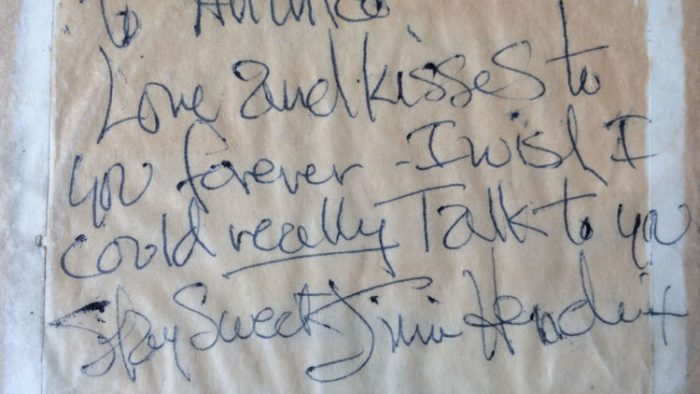 to
Love and kisses to
you forever - I wish I
could really Talk to you
Stay Sweet Jimi Hendrix